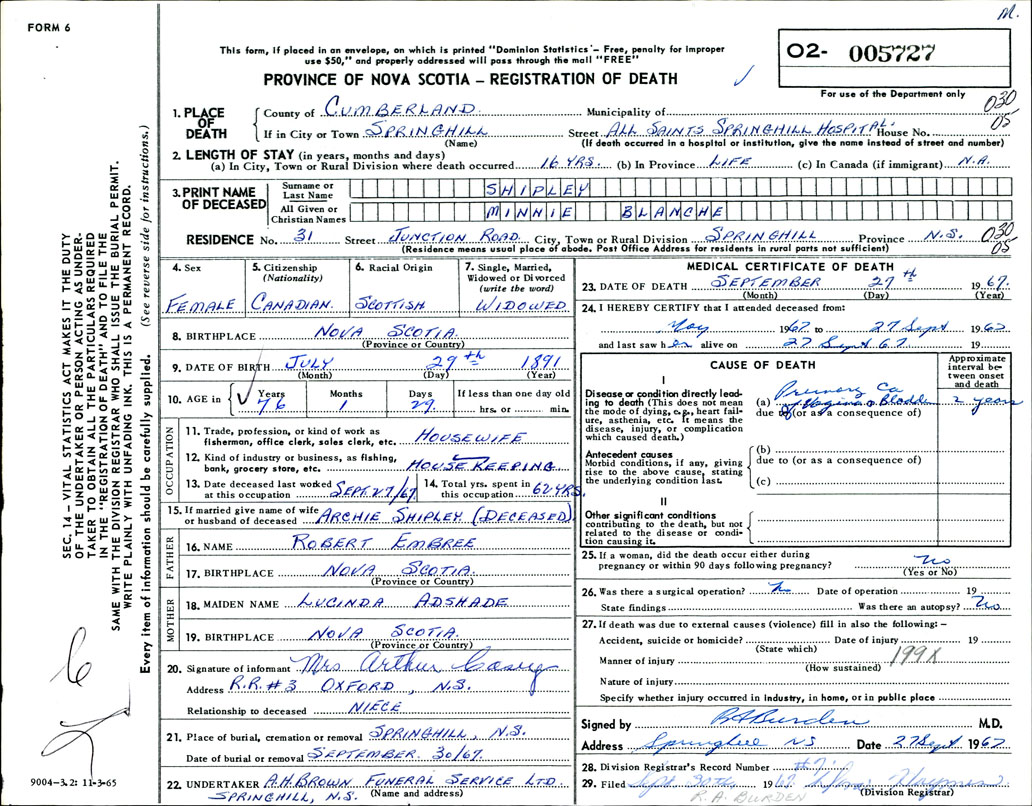 M.
FORM 6
This form, if placed in an envelope, on which is printed "Dominion Statistics - Free, penalty for improper
use $50," and properly addressed will pass through the mail "FREE"
PROVINCE OF NOVA SCOTIA – REGISTRATION OF DEATH
O2- 005727
For use of the Department only
030
05
1. PLACE OF DEATH
County of CUMBERLAND Municipality of
If in City or Town SPRINGHILL Street ALL SAINTS SPRINGHILL HOSPITAL House No.
(Name) (If death occurred in a hospital or institution, give the name instead of street and number)
2. LENGTH OF STAY (in years, months and days)
(a) In City, Town or Rural Division where death occurred 16 YRS. (b) In Province LIFE (c) In Canada (if immigrant) N.A.
3. PRINT NAME OF DECEASED
Surname or Last Name SHIPLEY
All Given or Christian Names MINNIE BLANCHE
RESIDENCE No. 31 Street JUNCTION ROAD City, Town or Rural Division SPRINGHILL Province N.S.
030
05
(Residence means usual place of abode. Post Office Address for residents in rural parts not sufficient)
4. Sex
FEMALE
5. Citizenship (Nationality)
CANADIAN.
6. Racial Origin
SCOTTISH
7. Single, Married, Widowed or Divorced (write the word)
WIDOWED
8. BIRTHPLACE NOVA SCOTIA.
(Province or Country)
9. DATE OF BIRTH JULY 29th 1891
(Month) (Day) (Year)
10. AGE in Years Months Days If less than one day old
76 1 29. hrs. or min.
OCCUPATION
11. Trade, profession, or kind of work as fisherman, office clerk, sales clerk, etc. HOUSEWIFE
12. Kind of industry or business, as fishing, bank, grocery store, etc. HOUSEKEEPING
13. Date deceased last worked at this occupation SEPT. 27/67
14. Total yrs. spent in this occupation 62 YRS.
15. If married give name of wife or husband of deceased ARCHIE SHIPLEY (DECEASED)
FATHER
16. NAME ROBERT EMBREE
17. BIRTHPLACE NOVA SCOTIA.
(Province or Country)
MOTHER
18. MAIDEN NAME LUCINDA ADSHADE
19. BIRTHPLACE NOVA SCOTIA.
(Province or Country)
20. Signature of informant Mrs Arthur Casey
Address R.R.#3 OXFORD, N.S.
Relationship to deceased NIECE
21. Place of burial, cremation or removal SPRINGHILL, N.S.
Date of burial or removal SEPTEMBER 30/67.
22. UNDERTAKER A.H. BROWN FUNERAL SERVICE LTD.
SPRINGHILL, N.S. (Name and address)
MEDICAL CERTIFICATE OF DEATH
23. DATE OF DEATH SEPTEMBER 27th 1967.
(Month) (Day) (Year)
24. I HEREBY CERTIFY that I attended deceased from:
May 1967 to 27 Sept 1967
and last saw her alive on 27 Sept 67 19
CAUSE OF DEATH
Approximate interval between onset and death
I
Disease or condition directly leading to death (This does not mean the mode of dying, e.g., heart failure, asthenia, etc. It means the disease, injury, or complication which caused death.)
(a) Primary Ca
of Vagina & Bladder 2 years
due to (or as a consequence of)
Antecedent causes
Morbid conditions, if any, giving rise to the above cause, stating the underlying condition last.
(b)
due to (or as a consequence of)
(c)
II
Other significant conditions
contributing to the death, but not related to the disease or condition causing it.
25. If a woman, did the death occur either during pregnancy or within 90 days following pregnancy? No
(Yes or No)
26. Was there a surgical operation? Date of operation 19
State findings Was there an autopsy? No
27. If death was due to external causes (violence) fill in also the following: –
Accident, suicide or homicide? Date of injury 19
(State which)
Manner of injury 199X
(How sustained)
Nature of injury
Specify whether injury occurred in industry, in home, or in public place
Signed by R A Burden M.D.
Address Springhill NS Date 27 Sept 1967
28. Division Registrar's Record Number #7
29. Filed Sept 30th 1967
(Division Registrar)
R.A. BURDEN
SEC. 14 – VITAL STATISTICS ACT MAKES IT THE DUTY
OF THE UNDERTAKER OR PERSON ACTING AS UNDER-
TAKER TO OBTAIN ALL THE PARTICULARS REQUIRED
IN THE "REGISTRATION OF DEATH" AND TO FILE THE
SAME WITH THE DIVISION REGISTRAR WHO SHALL ISSUE THE BURIAL PERMIT.
WRITE PLAINLY WITH UNFADING INK. THIS IS A PERMANENT RECORD.
Every item of information should be carefully supplied. (See reverse side for instructions.)
9004–3.2: 11-3-65